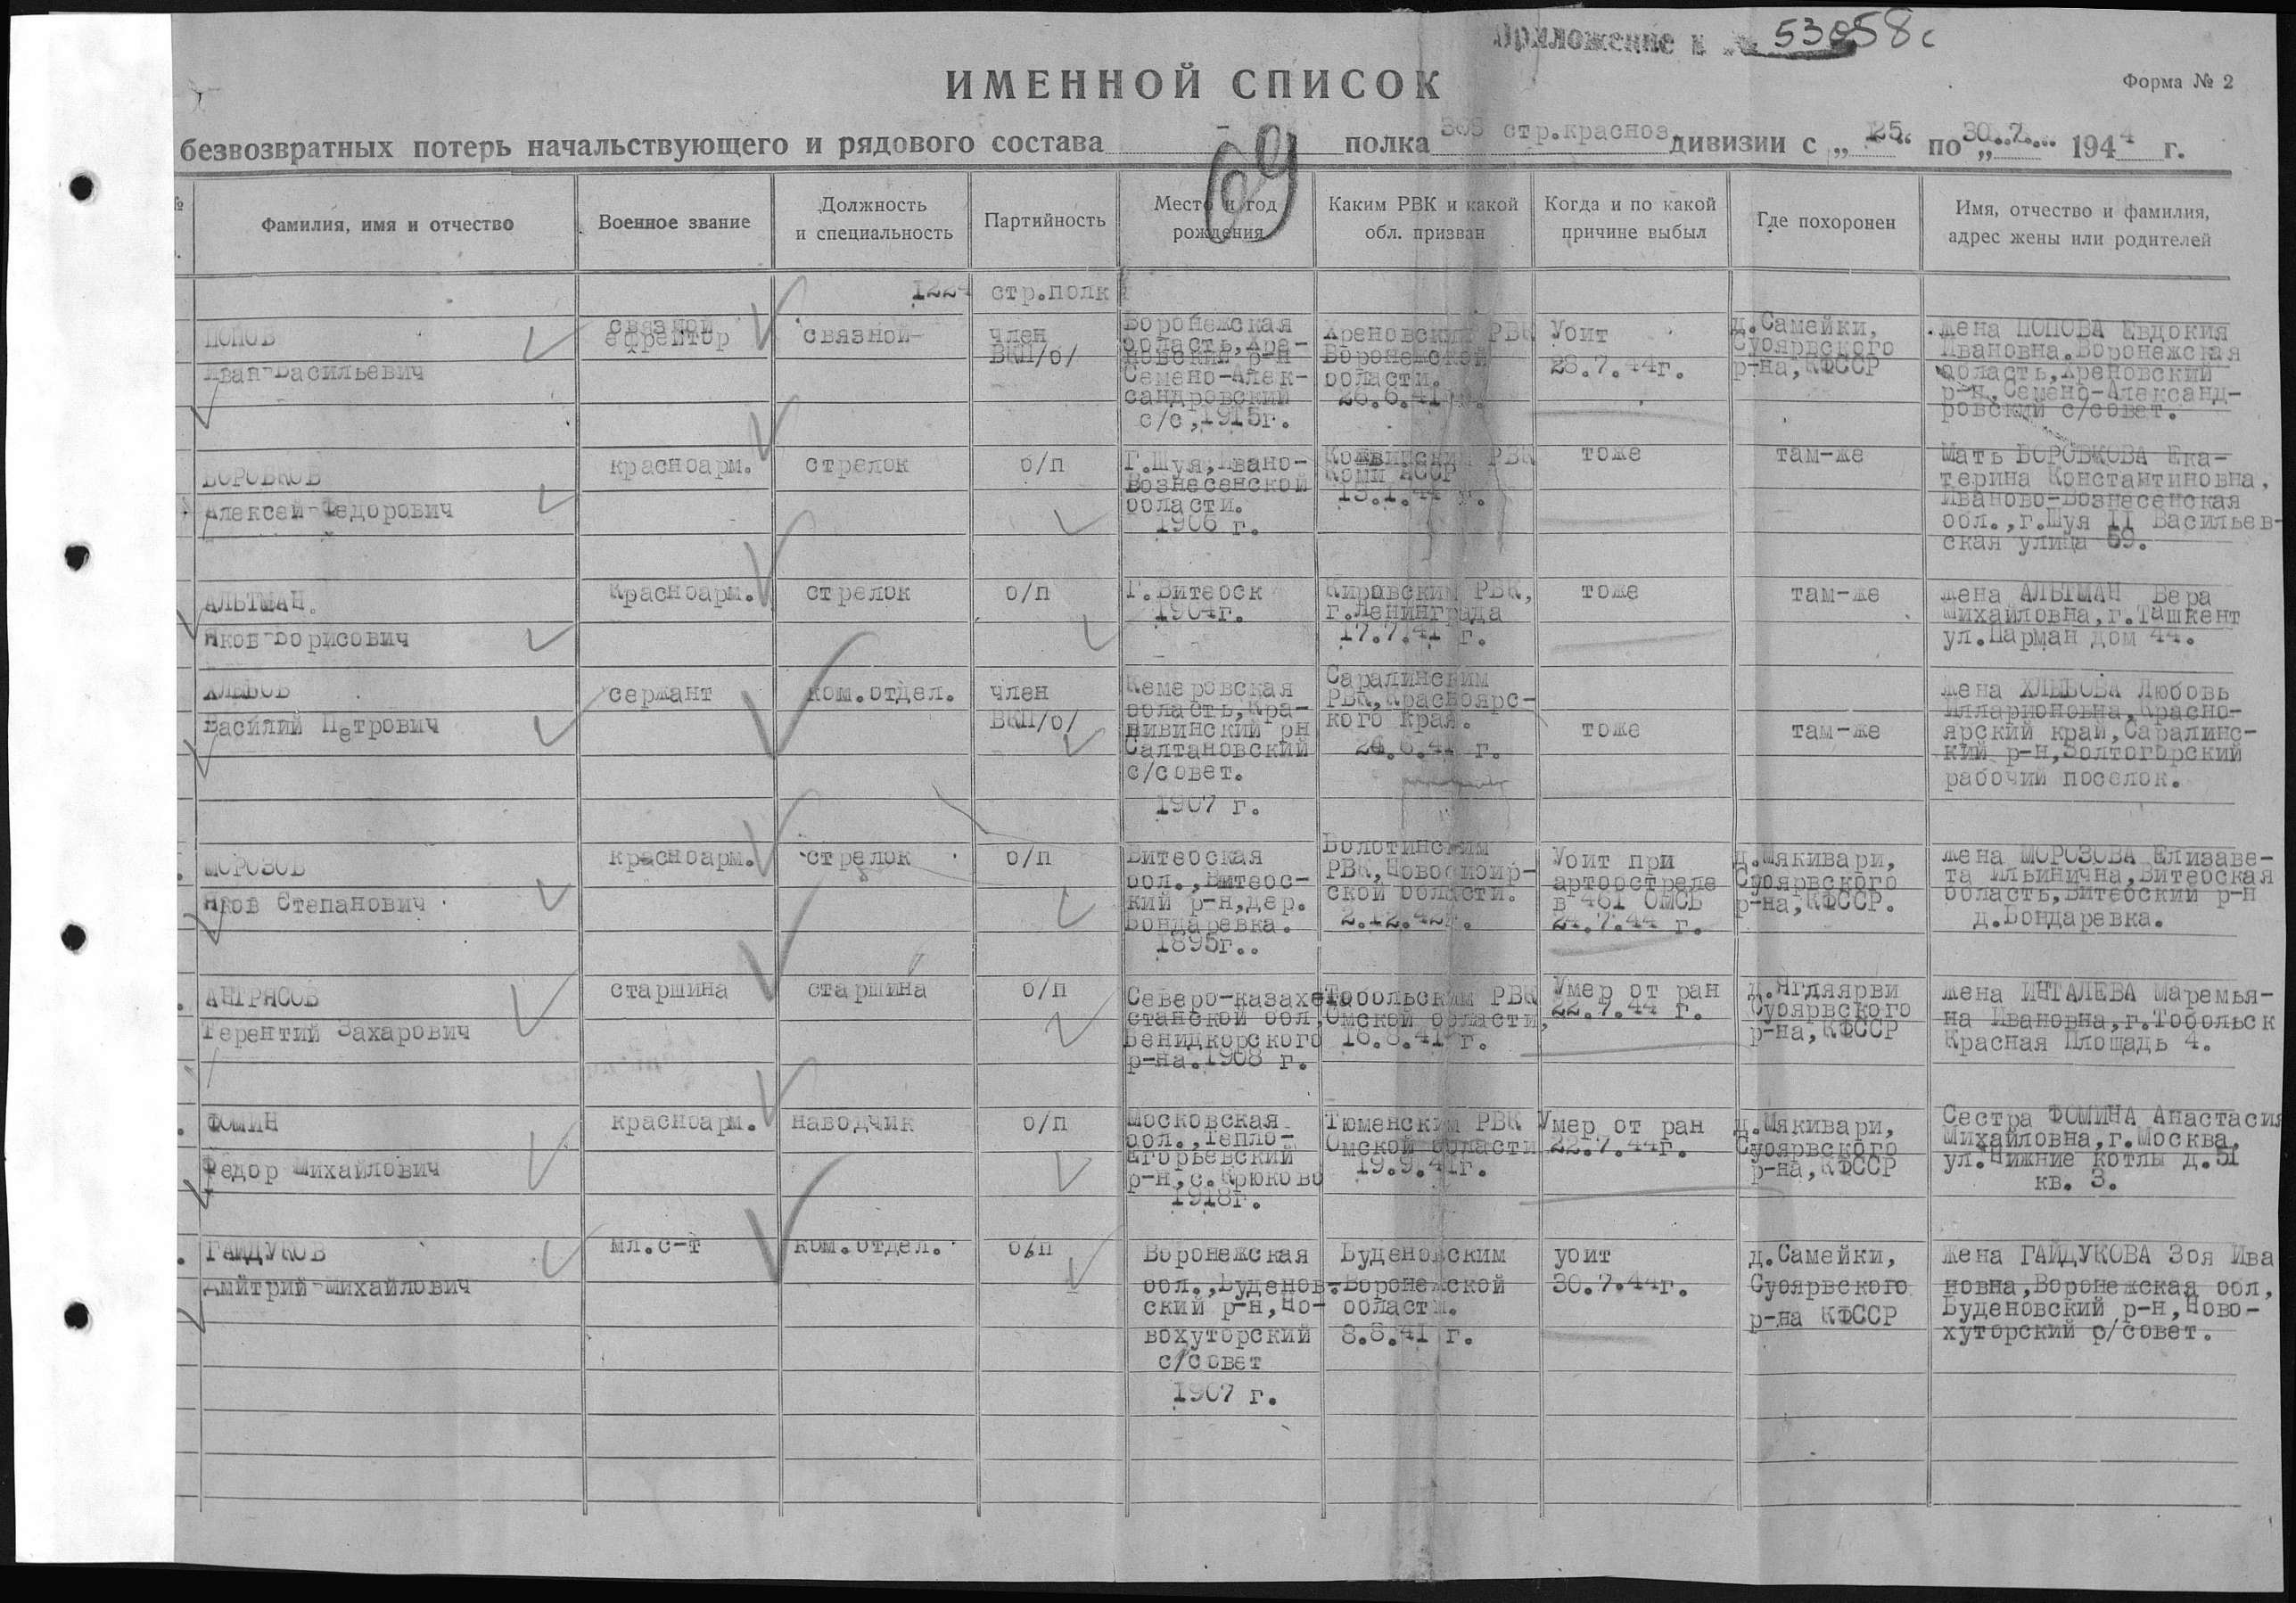 Приложение к № 53058с
ИМЕННОЙ СПИСОК
Форма № 2
безвозвратных потерь начальствующего и рядового состава - полка 368 стр.красноз. дивизии с „ 25 “ по „ 30.7. 1944 г.
69
№ Фамилия, имя и отчество Военное звание Должность и специальность Партийность Место и год рождения Каким РВК и какой обл. призван Когда и по какой причине выбыл Где похоронен Имя, отчество и фамилия, адрес жены или родителей
1224 стр.полк
ПОПОВ
Иван Васильевич
связной
ефрейтор
связной
член
ВКП/б/
Воронежская
область, Хре-
новский р-н
Семено-Алек-
сандровский
с/с, 1915г.
Хреновским РВК
Воронежской
области.
26.6.41 г.
Убит
28.7.44г.
д.Самейки,
Суоярвского
р-на, КФССР
жена ПОПОВА Евдокия
Ивановна.Воронежская
область,Хреновский
р-н, Семено-Александ-
ровский с/совет.
БОРОВКОВ
Алексей Федорович
красноарм.
стрелок
б/п
Г.Шуя, Ивано-
Вознесенской
области.
1906 г.
Кожвинским РВК
Коми АССР
тоже
там-же
Мать БОРОВКОВА Ека-
терина Константиновна,
Иваново-Вознесенская
обл.,г.Шуя II Васильев-
ская улица 59.
АЛЬТМАН.
Яков Борисович
Красноарм.
стрелок
б/п
Г.Витебск
1904г.
Кировским РВК,
г.Ленинграда
17.7.41 г.
тоже
там-же
жена АЛЬТМАН Вера
Михайловна,г.Ташкент
ул.Парман дом 44.
ХЛЕБОВ
Василий Петрович
сержант
ком.отдел.
член
ВКП/б/
Кемеровская
область,Кра-
пивинский рн
Салтановский
с/совет.
1907 г.
Саралинским
РВК,Красноярс-
кого края.
26.6.41 г.
тоже
там-же
жена ХЛЕБОВА Любовь
Илларионовна,Красно-
ярский край,Саралинс-
кий р-н,Золтогорский
рабочий поселок.
МОРОЗОВ
Яков Степанович
красноарм.
стрелок
б/п
Витебская
обл.,Витебс-
кий р-н,дер.
Бондаревка.
1895г..
Болотинским
РВК,Новосибир-
ской области.
2.12.42г.
Убит при
артобстреле
в 461 ОМСБ
24.7.44 г.
д.Мякивари,
Суоярвского
р-на,КФССР.
жена МОРОЗОВА Елизаве-
та Ильинична,Витебская
область,Витебский р-н
д.Бондаревка.
АНГРЯСОВ
Терентий Захарович
старшина
старшина
б/п
Северо-казахс-
станской обл,
Бенидкорского
р-на.1908 г.
Тобольским РВК
Омской области,
16.8.41 г.
Умер от ран
22.7.44 г.
д.Ягляярви
Суоярвского
р-на,КФССР
жена ИНГАЛЕВА Маремья-
на Ивановна,г.Тобольск
Красная Площадь 4.
ФОМИН
Федор Михайлович
красноарм.
наводчик
б/п
Московская
обл.,Тепло-
Егорьевский
р-н,с.Крюково
1918г.
Тюменским РВК
Омской области
19.9.41г.
Умер от ран
22.7.44г.
д.Мякивари,
Суоярвского
р-на,КФССР
Сестра ФОМИНА Анастасия
Михайловна,г.Москва,
ул.Нижние котлы д.51
кв. 3.
ГАЙДУКОВ
Дмитрий Михайлович
мл.с-т
ком.отдел.
б/п
Воронежская
обл.,Буденов-
ский р-н,Но-
вохуторский
с/совет
1907 г.
Буденовским
Воронежской
области.
8.8.41 г.
убит
30.7.44г.
д.Самейки,
Суоярвского
р-на КФССР
Жена ГАЙДУКОВА Зоя Ива
новна,Воронежская обл,
Буденовский р-н,Ново-
хуторский с/совет.